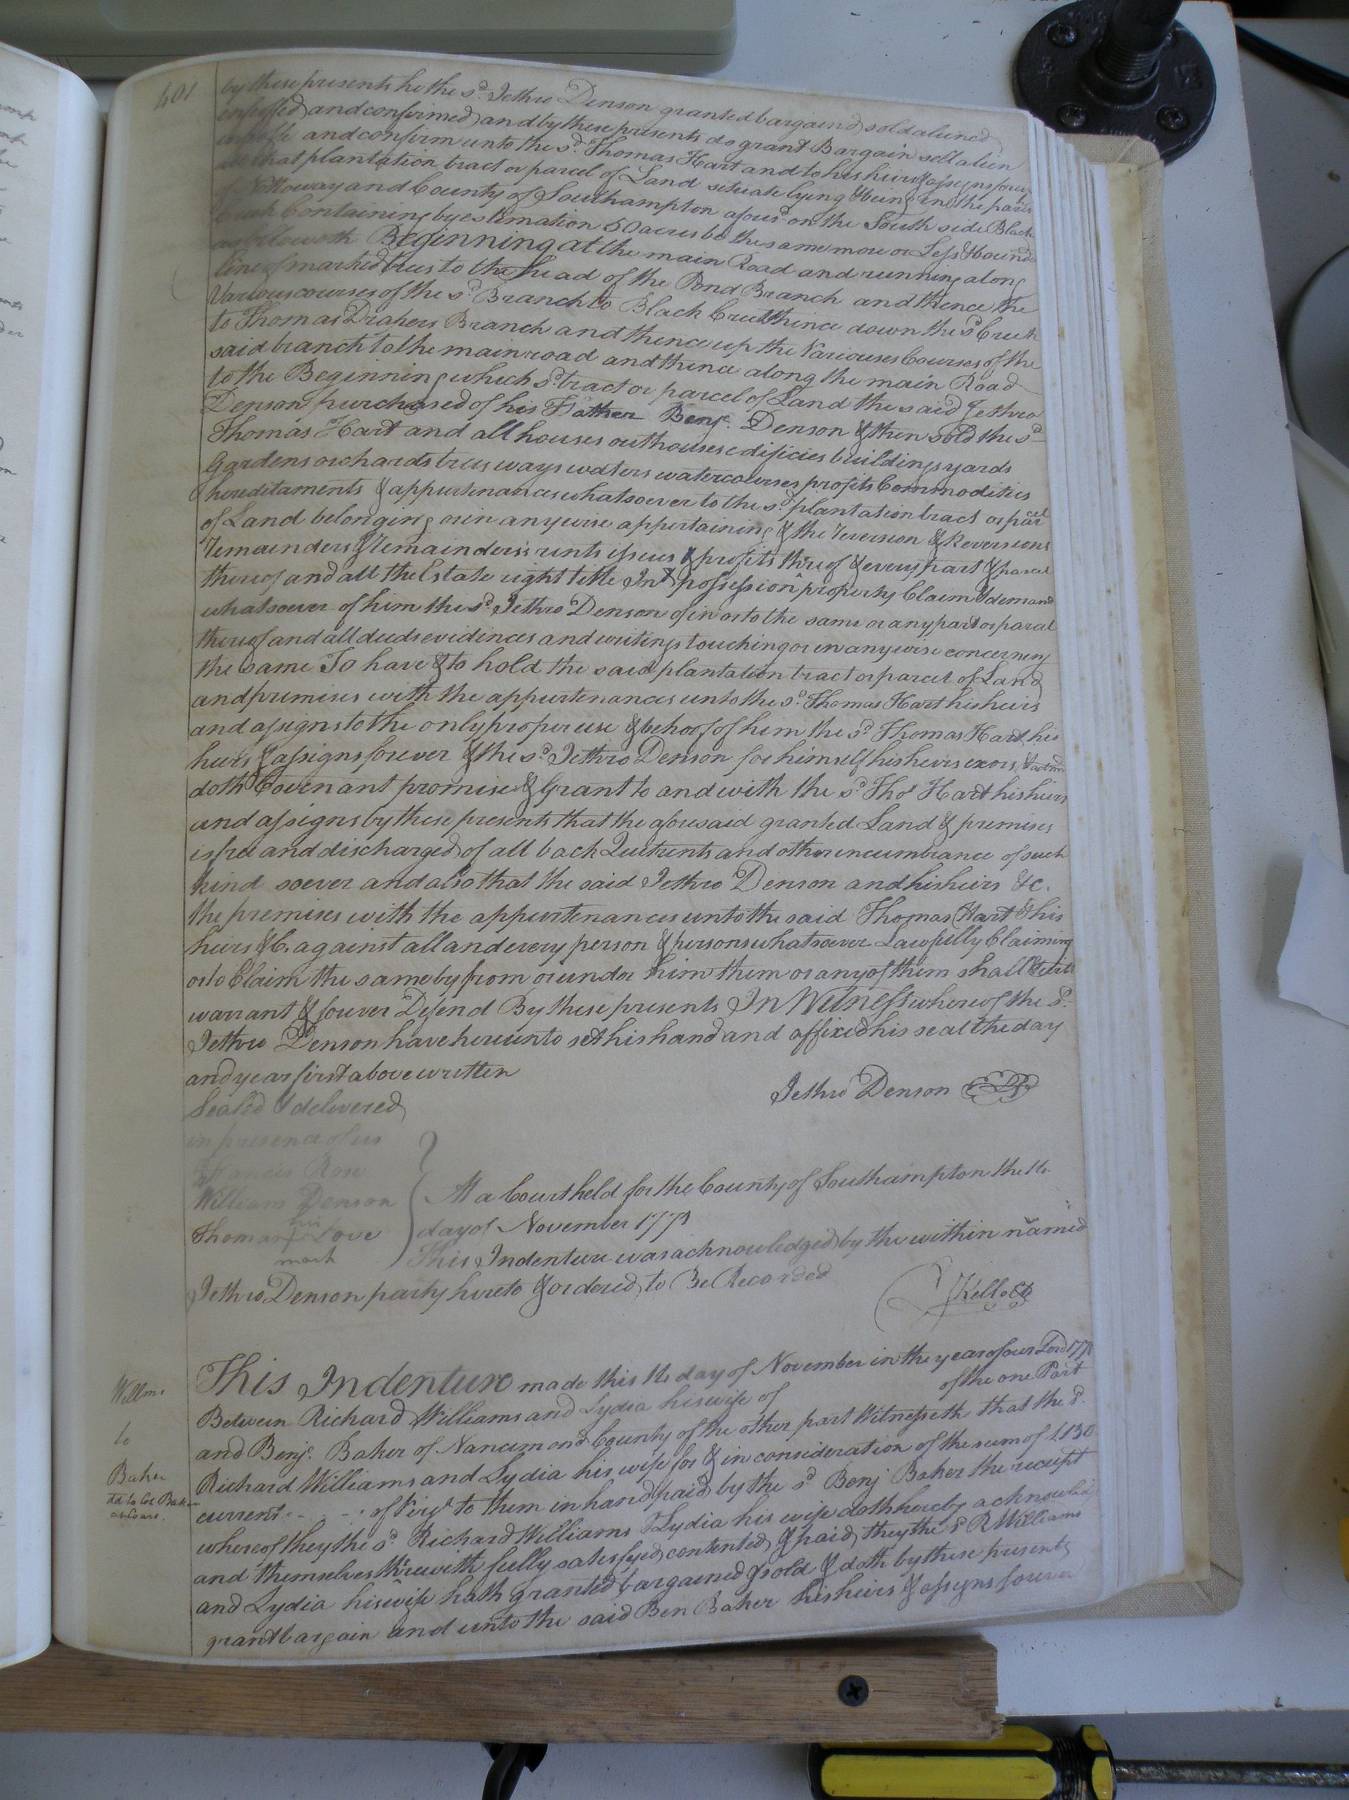 401
by these presents he the sd. Jethro Denson granted bargaind sold aliened
enfeoffed and confirmed and by these presents do grant Bargain sell alien
and confirm unto the sd. Thomas Hart and to his heirs & assigns forever
all that plantation tract or parcel of Land situate lying & being in the parish
of Nottoway and County of Southampton aforesd. on the South side Black
Creek Containing by estimation 50 acres be the same more or Less & bounded
as followeth Beginning at the main Road and running along
line of marked trees to the head of the Pond Branch and thence the
Various courses of the sd. Branch to Black Creek thence down the sd. Creek
to Thomas Drakers Branch and thence up the Variouses Courses of the
said branch to the main road and thence along the main Road
to the Beginning which sd. tract or parcel of Land the said Jethro
Denson purchased of his Father Benj. Denson & then sold the sd.
Thomas Hart and all houses outhouses edificies buildings yards
Gardens orchards trees ways waters watercourses profits Commodities
hereditaments & appurtenances whatsoever to the sd. plantation tract or parcel
of Land belonging or in anywise appertaining & the reversion & Reversions
remainder & remainders rents issues & profits thereof & every part & parcel
thereof and all the Estate right title Int. possession property Claim & demand
whatsoever of him the sd. Jethro Denson of in or to the same or any part or parcel
thereof and all deeds evidences and writings touching or in anywise concerning
the same To have & to hold the said plantation tract or parcel of Land
and premises with the appurtenances unto the sd. Thomas Hart his heirs
and assigns to the only proper use & behoof of him the sd. Thomas Hart his
heirs & assigns forever & the sd. Jethro Denson for himself his heirs exors.
doth Covenant promise & Grant to and with the sd. Thos. Hart his heirs
and assigns by these presents that the aforesaid granted Land & premises
is free and discharged of all back Quitrents and other incumbrance of such
kind soever and also that the said Jethro Denson and his heirs &c.
the premises with the appurtenances unto the said Thomas Hart & his
heirs &C. against all and every person & persons whatsoever Lawfully Claiming
or to Claim the same by from or under him them or any of them shall & will
warrant & forever Defend By these presents In Witness whereof the sd.
Jethro Denson have hereunto set his hand and affixed his seal the day
and year first above written
Jethro Denson
Sealed & delivered
in presence of us
Francis Rose
William Denson
Thomas his Love
mark
At a Court held for the County of Southampton the 14
day of November 1771
This Indenture was acknowledged by the within named
Jethro Denson party hereto & ordered to Be Recorded
Kello
Willms
to
Baker
This Indenture made this 14 day of November in the year of our Lord 1771
Between Richard Williams and Lydia his wife of of the one Part
and Benj. Baker of Nancemond County of the other part Witnesseth that the sd.
Richard Williams and Lydia his wife for & in consideration of the sum of £130
current of Virga. to them in hand paid by the sd. Benj Baker the receipt
whereof they the sd. Richard Williams & Lydia his wife doth hereby acknowledge
and themselves therewith fully satisfyed contented & paid they the sd. R Williams
and Lydia his wife hath granted bargained & sold & doth by these presents
grant bargain and unto the said Ben Baker his heirs & assigns forever